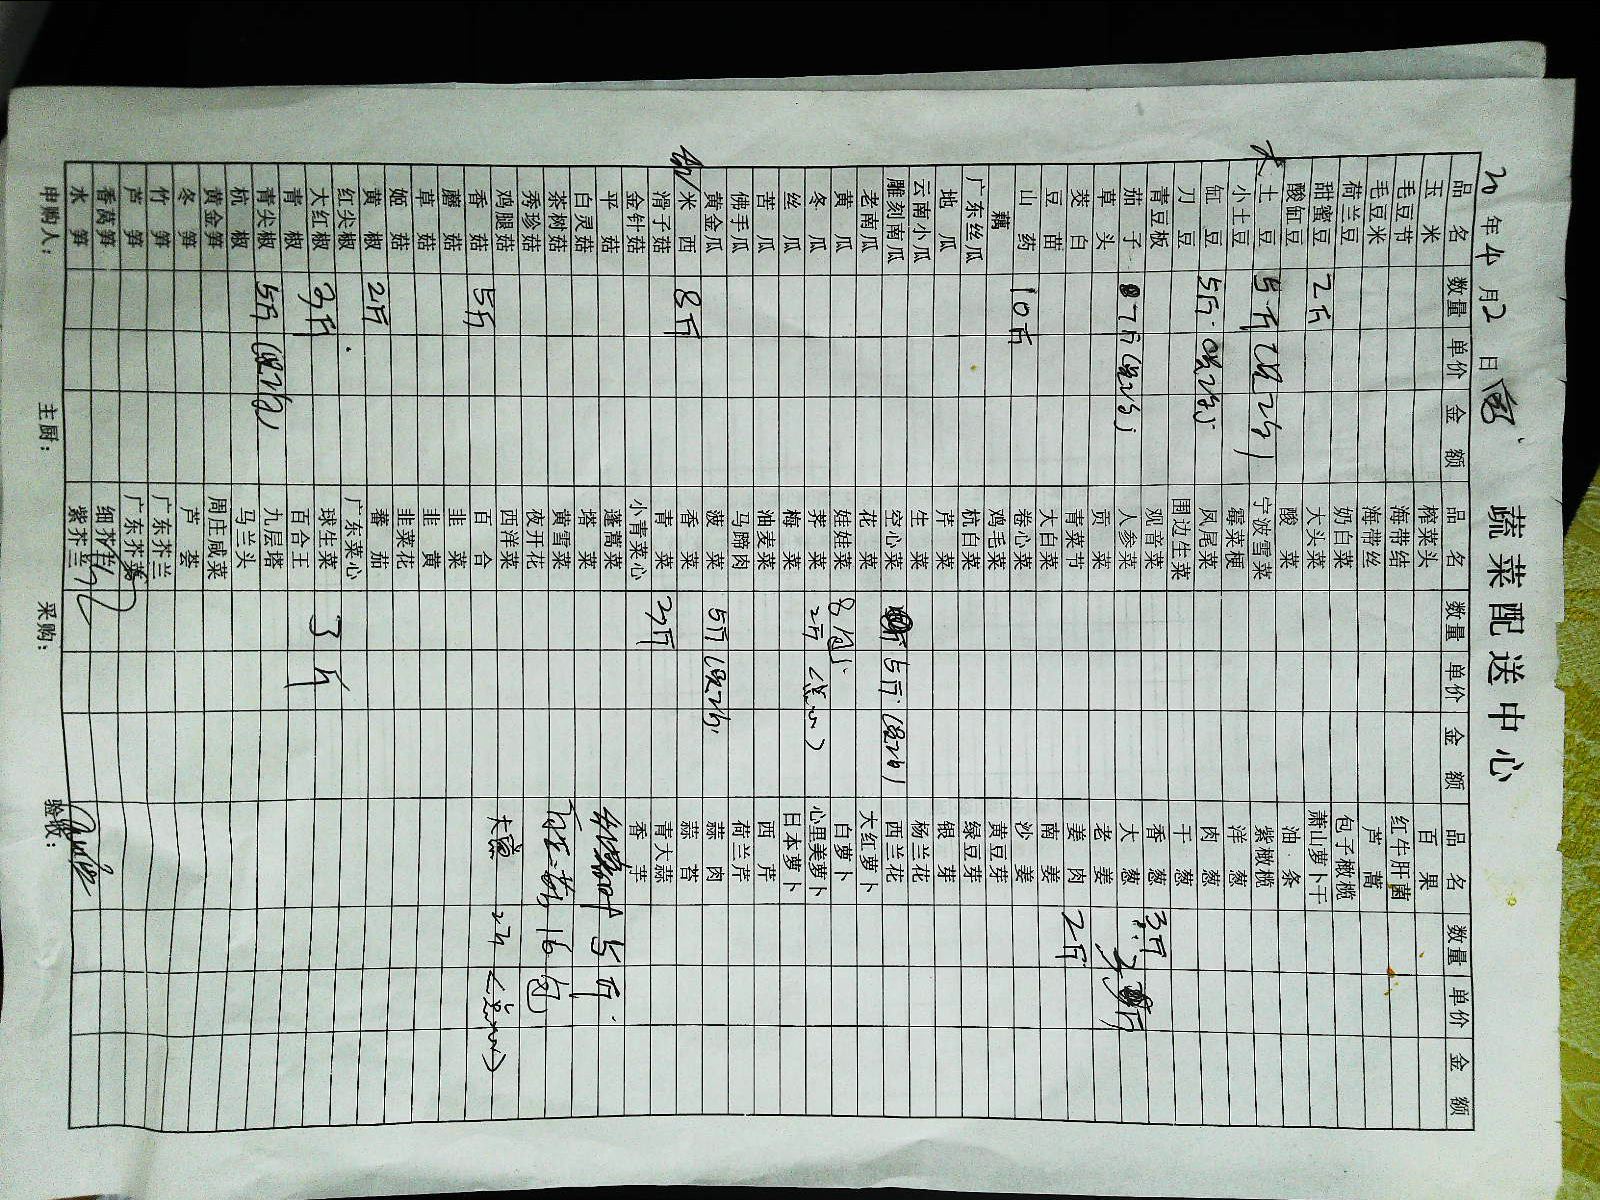 蔬菜配送中心
年4月2日
品名 数量 单价 金额 品名 数量 单价 金额 品名 数量 单价 金额
玉米 榨菜头 百果
毛豆节 海带结 红牛肝菌
毛豆米 海带丝 芦蒿
荷兰豆 奶白菜 包子橄榄
甜蜜豆 2斤 大头菜 萧山萝卜干
酸缸豆 酸菜 油条
大土豆 5斤 宁波雪菜 紫橄榄
小土豆 霉菜梗 洋葱
缸豆 5斤 凤尾菜 肉葱
刀豆 围边生菜 干葱
青豆板 观音菜 香葱 3斤
茄子 7斤 人参菜 大葱
草头 贡菜 老姜
茭白 青菜节 姜肉 2斤
豆苗 大白菜 南姜
山药 10斤 卷心菜 沙姜
藕 鸡毛菜 黄豆芽
广东丝瓜 杭白菜 绿豆芽
地瓜 芹菜 银芽
云南小瓜 生菜 杨兰花
雕刻南瓜 空心菜 5斤 西兰花
老南瓜 花菜 大红萝卜
黄瓜 娃娃菜 8包 白萝卜
冬瓜 荠菜 2斤 心里美萝卜
丝瓜 梅菜 日本萝卜
苦瓜 油麦菜 西芹
佛手瓜 马蹄肉 荷兰芹
黄金瓜 菠菜 5斤 蒜肉
米西 8斤 香菜 蒜苔
滑子菇 青菜 3斤 青大蒜
金针菇 小青菜心 香芹
平菇 蓬蒿菜 5斤
白灵菇 塔菜
茶树菇 黄雪菜 16包
秀珍菇 夜开花
鸡腿菇 西洋菜 2斤
香菇 5斤 百合
蘑菇 韭菜
草菇 韭黄
姬菇 韭菜花
黄椒 2斤 蕃茄
红尖椒 广东菜心
大红椒 3斤 球生菜 3斤
青椒 百合王
青尖椒 5斤 九层塔
杭椒 马兰头
黄金笋 周庄咸菜
冬笋 芦荟
竹笋 广东芥兰
芦笋 广东芥菜
香莴笋 细芥兰
水笋 紫芥兰
申购人： 主厨： 采购： 验收：